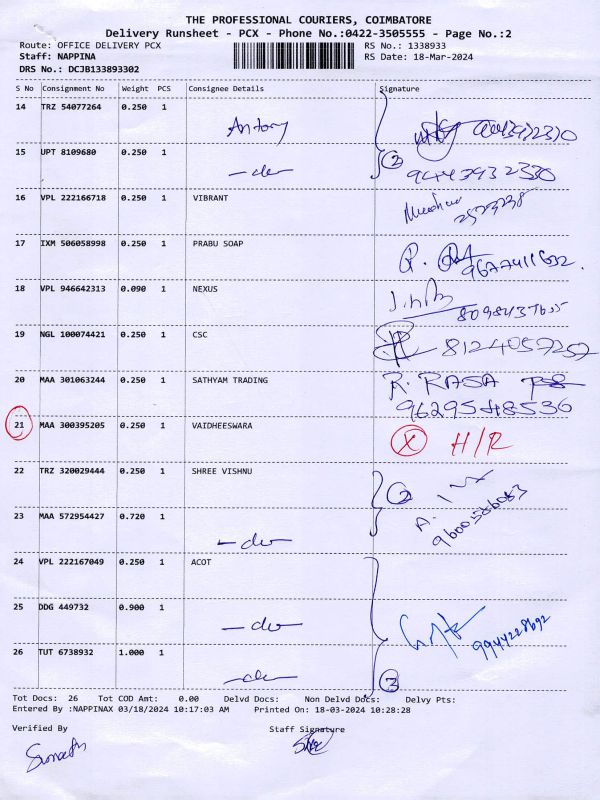 THE PROFESSIONAL COURIERS, COIMBATORE
Delivery Runsheet - PCX - Phone No.:0422-3505555 - Page No.:2
Route: OFFICE DELIVERY PCX RS No.: 1338933
Staff: NAPPINA RS Date: 18-Mar-2024
DRS No.: DCJB133893302
S No Consignment No Weight PCS Consignee Details Signature
14 TRZ 54077264 0.250 1 Antony
15 UPT 8109680 0.250 1 —do— 2 9443932330
16 VPL 222166718 0.250 1 VIBRANT
17 IXM 506058998 0.250 1 PRABU SOAP 9677411632.
18 VPL 946642313 0.090 1 NEXUS 8098437655
19 NGL 100074421 0.250 1 CSC 8124057257
20 MAA 301063244 0.250 1 SATHYAM TRADING R. RAJA
9629548536
21 MAA 300395205 0.250 1 VAIDHEESWARA X H/R
22 TRZ 320029444 0.250 1 SHREE VISHNU 2
23 MAA 572954427 0.720 1 —do— 9600586083
24 VPL 222167049 0.250 1 ACOT
25 DDG 449732 0.900 1 —do— 9944228692
26 TUT 6738932 1.000 1 —do— 3
Tot Docs: 26 Tot COD Amt: 0.00 Delvd Docs: Non Delvd Docs: Delvy Pts:
Entered By :NAPPINAX 03/18/2024 10:17:03 AM Printed On: 18-03-2024 10:28:28
Verified By Staff Signature